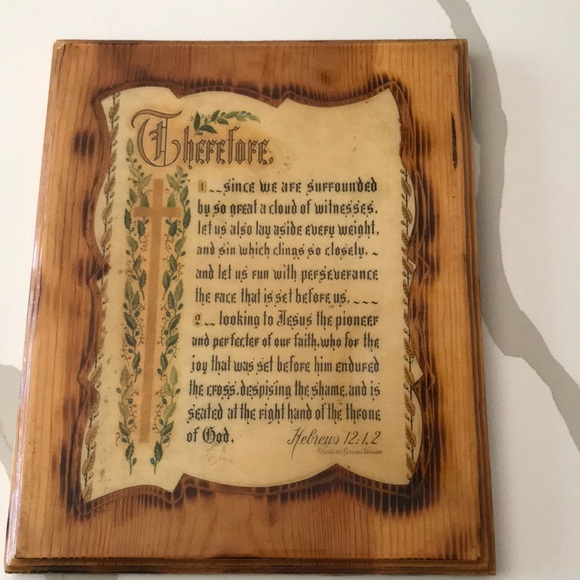 Therefore,
1 -- since we are surrounded
by so great a cloud of witnesses,
let us also lay aside every weight,
and sin which clings so closely, -
and let us run with perseverance
the race that is set before us, ----
2 -- looking to Jesus the pioneer
and perfecter of our faith, who for the
joy that was set before him endured
the cross, despising the shame, and is
seated at the right hand of the throne
of God.
Hebrews 12:1,2
Revised Standard Version